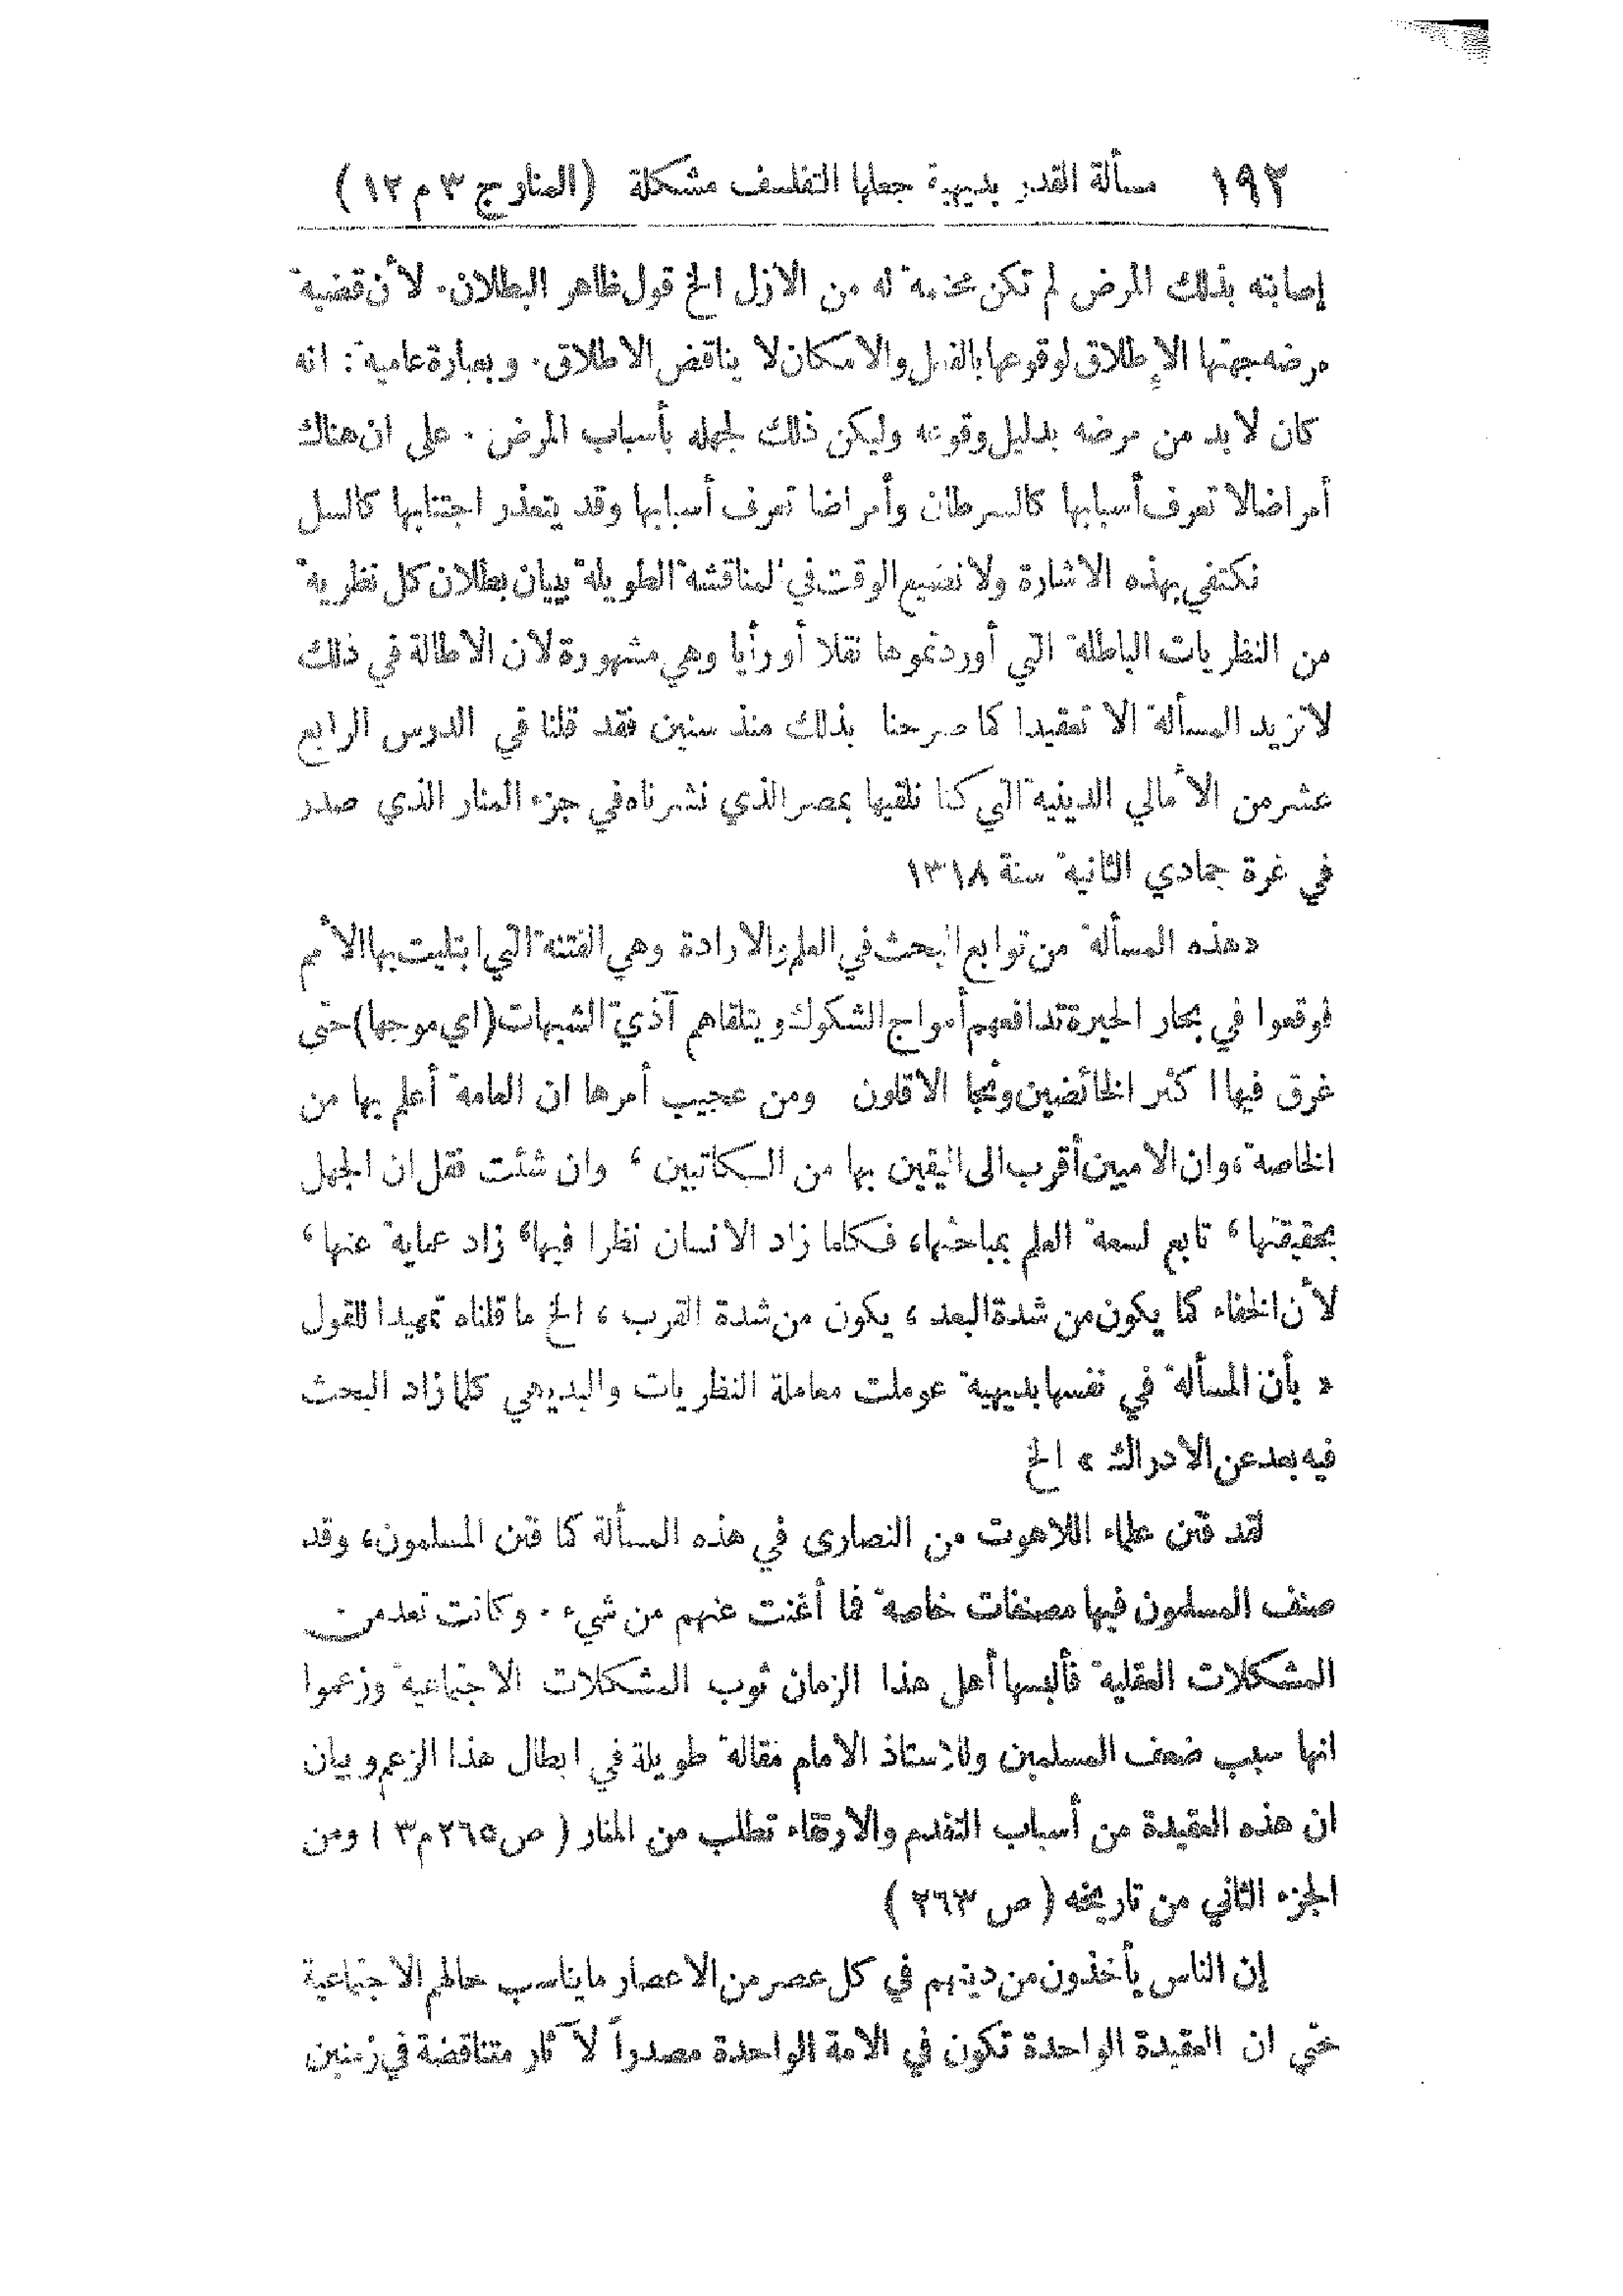 ١٩٢ مسألة القدر بديهية جعلها التفلسف مشكلة (المنار ج ٣ م ١٢)
إصابته بذلك المرض لم تكن محتمة له من الازل الخ قول ظاهر البطلان. لأن قضية
مرضه جهتها الإطلاق لوقوعها بالفعل والامكان لا يناقض الاطلاق. وبعبارة عامية: انه
كان لا بد من مرضه بدليل وقوعه وليكن ذلك لجهله بأسباب المرض. على ان هناك
أمراضا لا تعرف أسبابها كالسرطان وأمراضا تعرف أسبابها وقد يتعذر اجتنابها كالسل
نكتفي بهذه الاشارة ولا نضيع الوقت في المناقشة الطويلة ببيان بطلان كل نظرية
من النظريات الباطلة التي أوردتموها نقلا أو رأيا وهي مشهورة لان الاطالة في ذلك
لا تزيد المسألة الا تعقيدا كما صرحنا بذلك منذ سنين فقد قلنا في الدرس الرابع
عشر من الأمالي الدينية التي كنا نلقيها بمصر الذي نشرناه في جزء المنار الذي صدر
في غرة جمادي الثانية سنة ١٣١٨
«هذه المسألة من توابع البحث في العلم والارادة وهي الفتنة التي ابتليت بها الأمم
فوقعوا في بحار الحيرة تدافعهم أمواج الشكوك ويتلقاهم آذيّ الشبهات (اي موجها) حتى
غرق فيها اكثر الخائضين ونجا الاقلون ومن عجيب أمرها ان العامة أعلم بها من
الخاصة، وان الاميين أقرب الى اليقين بها من الكاتبين، وان شئت فقل ان الجهل
بحقيقتها، تابع لسعة العلم بمباحثها، فكلما زاد الانسان نظرا فيها، زاد عماية عنها،
لأن الخفاء كما يكون من شدة البعد، يكون من شدة القرب، الخ ما قلناه تمهيدا للقول
«بأن المسألة في نفسها بديهية عوملت معاملة النظريات والبديهي كلما زاد البحث
فيه بعد عن الادراك» الخ
لقد فتن علماء اللاهوت من النصارى في هذه المسألة كما فتن المسلمون، وقد
صنف المسلمون فيها مصنفات خاصة فما أغنت عنهم من شيء. وكانت تعد من
المشكلات العقلية فألبسها أهل هذا الزمان ثوب المشكلات الاجتماعية وزعموا
انها سبب ضعف المسلمين وللاستاذ الامام مقالة طويلة في ابطال هذا الزعم وبيان
ان هذه العقيدة من أسباب التقدم والارتقاء تطلب من المنار (ص ٢٦٥ م ٣) ومن
الجزء الثاني من تاريخه (ص ٢٦٣)
إن الناس يأخذون من دينهم في كل عصر من الاعصار ما يناسب حالهم الاجتماعية
حتى ان العقيدة الواحدة تكون في الامة الواحدة مصدراً لآثار متناقضة في زمنين